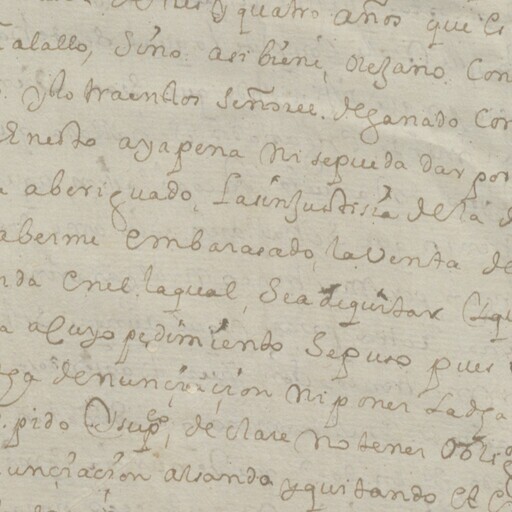 y quatro años que es
Caballo, Sino asi biene, orejano. Con
y lo traen los Señores. deganado Con
Enesto aya pena ni sepueda dar por
aberiguado, Lasinjustisia de la
abermi embarasado, laVenta de
nda enel laqual, Sea dequitar
a Cuyo pedimiento Sepuso pues
denunciacion niponer Ladha
pido Y Supco, declare notener obli
nunciacion alsando yquitando el